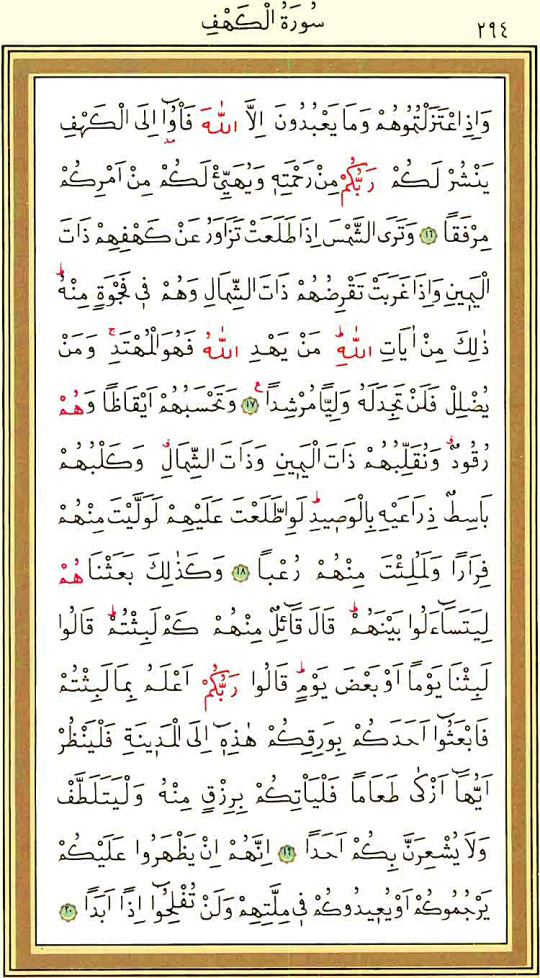 سُورَةُ الْكَهْفِ ٢٩٤
وَاِذِ اعْتَزَلْتُمُوهُمْ وَمَا يَعْبُدُونَ اِلَّا اللّٰهَ فَأْوُٓا اِلَى الْكَهْفِ
يَنْشُرْ لَكُمْ رَبُّكُمْ مِنْ رَحْمَتِه۪ وَيُهَيِّئْ لَكُمْ مِنْ اَمْرِكُمْ
مِرْفَقًا ﴿١٦﴾ وَتَرَى الشَّمْسَ اِذَا طَلَعَتْ تَزَاوَرُ عَنْ كَهْفِهِمْ ذَاتَ
الْيَم۪ينِ وَاِذَا غَرَبَتْ تَقْرِضُهُمْ ذَاتَ الشِّمَالِ وَهُمْ ف۪ي فَجْوَةٍ مِنْهُۜ
ذٰلِكَ مِنْ اٰيَاتِ اللّٰهِۜ مَنْ يَهْدِ اللّٰهُ فَهُوَ الْمُهْتَدِۚ وَمَنْ
يُضْلِلْ فَلَنْ تَجِدَ لَهُ وَلِيًّا مُرْشِدًا۟ ﴿١٧﴾ وَتَحْسَبُهُمْ اَيْقَاظًا وَهُمْ
رُقُودٌۗ وَنُقَلِّبُهُمْ ذَاتَ الْيَم۪ينِ وَذَاتَ الشِّمَالِۗ وَكَلْبُهُمْ
بَاسِطٌ ذِرَاعَيْهِ بِالْوَص۪يدِۜ لَوِ اطَّلَعْتَ عَلَيْهِمْ لَوَلَّيْتَ مِنْهُمْ
فِرَارًا وَلَمُلِئْتَ مِنْهُمْ رُعْبًا ﴿١٨﴾ وَكَذٰلِكَ بَعَثْنَاهُمْ
لِيَتَسَٓاءَلُوا بَيْنَهُمْۜ قَالَ قَٓائِلٌ مِنْهُمْ كَمْ لَبِثْتُمْۜ قَالُوا
لَبِثْنَا يَوْمًا اَوْ بَعْضَ يَوْمٍۜ قَالُوا رَبُّكُمْ اَعْلَمُ بِمَا لَبِثْتُمْ
فَابْعَثُٓوا اَحَدَكُمْ بِوَرِقِكُمْ هٰذِه۪ٓ اِلَى الْمَد۪ينَةِ فَلْيَنْظُرْ
اَيُّهَٓا اَزْكٰى طَعَامًا فَلْيَأْتِكُمْ بِرِزْقٍ مِنْهُ وَلْيَتَلَطَّفْ
وَلَا يُشْعِرَنَّ بِكُمْ اَحَدًا ﴿١٩﴾ اِنَّهُمْ اِنْ يَظْهَرُوا عَلَيْكُمْ
يَرْجُمُوكُمْ اَوْ يُع۪يدُوكُمْ ف۪ي مِلَّتِهِمْ وَلَنْ تُفْلِحُٓوا اِذًا اَبَدًا ﴿٢٠﴾